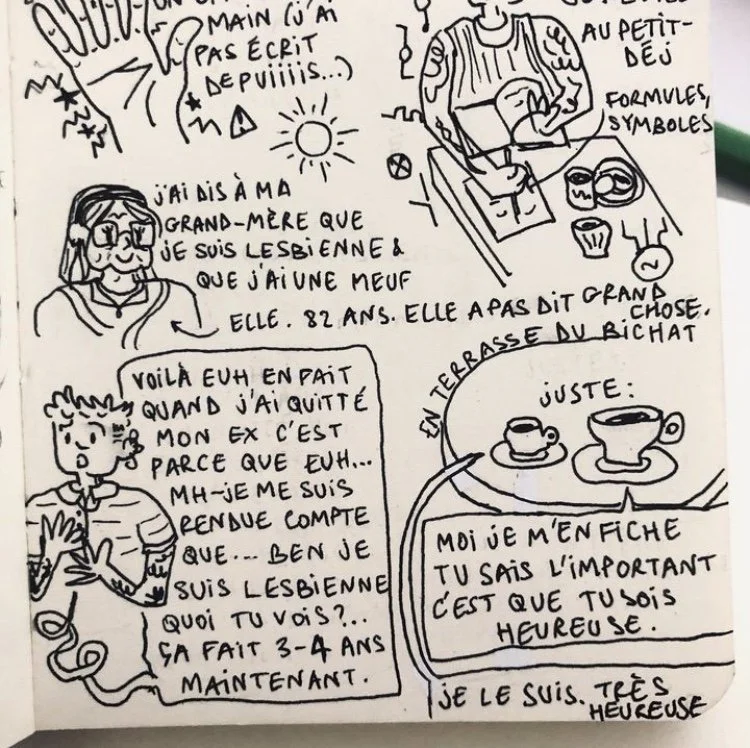 MAIN (J'AI
PAS ÉCRIT
DEPUIIIIS...)
AU PETIT-
DÉJ
FORMULES,
SYMBOLES
J'AI DIS À MA
GRAND-MÈRE QUE
JE SUIS LESBIENNE &
QUE J'AI UNE MEUF
ELLE. 82 ANS. ELLE A PAS DIT GRAND
CHOSE.
VOILÀ EUH EN FAIT
QUAND J'AI QUITTÉ
MON EX C'EST
PARCE QUE EUH...
MH-JE ME SUIS
RENDUE COMPTE
QUE... BEN JE
SUIS LESBIENNE
QUOI TU VOIS?..
ÇA FAIT 3-4 ANS
MAINTENANT.
EN TERRASSE DU BICHAT
JUSTE:
MOI JE M'EN FICHE
TU SAIS L'IMPORTANT
C'EST QUE TU SOIS
HEUREUSE.
JE LE SUIS. TRÈS
HEUREUSE